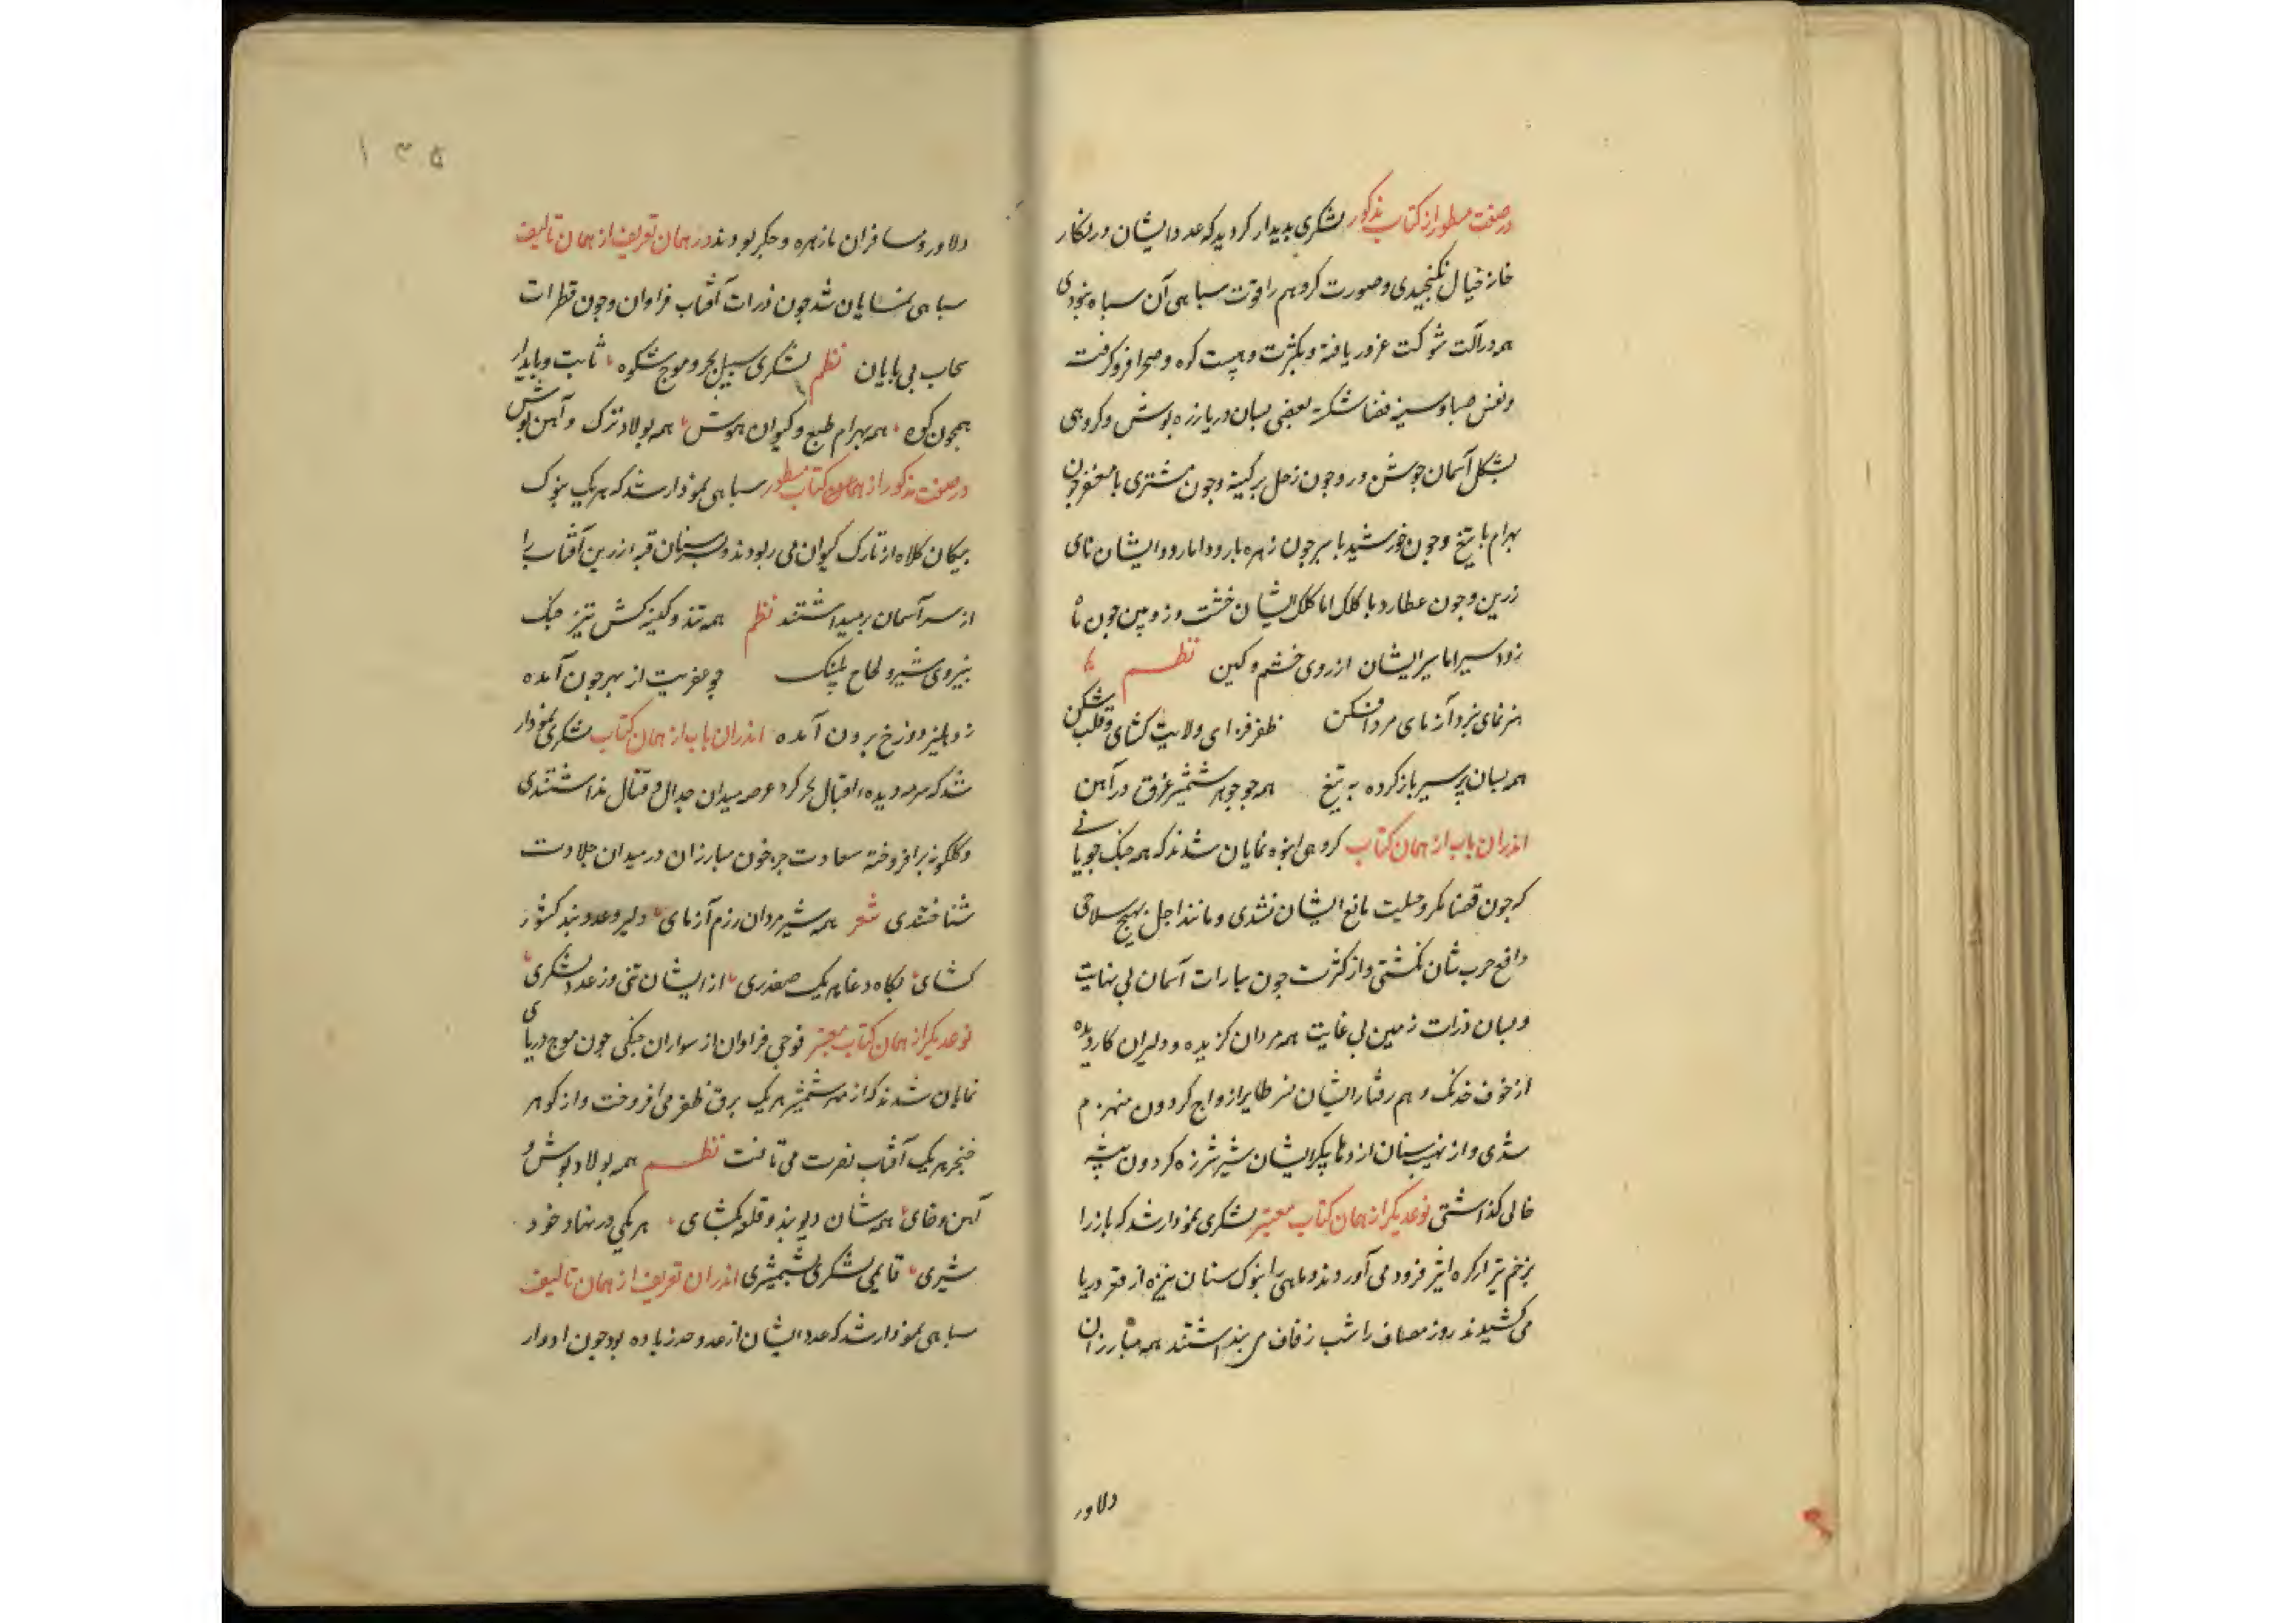 در صفت مسطور از کتاب مذکور لشکری بدیدار کردید که عدد ایشان در نکار
خانه خیال نکنجیدی و صورت کر وهم را قوت سیاهی آن سباه نبودی
همه در آلت شوکت غرور یافته و بکثرت و هیبت کوه و صحرا فرو کرفت
و نفس صبا و سینه فضا شکسته بعضی بسان دریا زره بوش و کروهی
بشکل آسمان جوشن ور و جون زحل بر کینه و جون مشتری با مغفر جون
بهرام با تیغ و جون خورشید با سبر جون زهره با رود اما رود ایشان نای
زرین و جون عطارد با کلک اما کلک ایشان خشت و زوبین جون ماه
زود سیر اما سیر ایشان از روی خشم و کین نظم
هنر نمای نبرد آزمای مرد افکن ظفر فزای ولایت کشای و قلب شکن
همه بسان سبر باز کرده به تیغ همه جو جوهر شمشیر غرق در آهن
اندران باب از همان کتاب کروهی انبوه نمایان شدند که همه جنک جویانی
که جون قضا مکر و حیلت مانع ایشان نشدی و مانند اجل بهیچ سلاحی
دافع حرب شان نکشتی و از کثرت جون سیارات آسمان بی نهایت
و بسان ذرات زمین بی غایت همه مردان کزیده و دلیران کار دیده
از خوف خدنک وهم رفتار ایشان نسر طایر از واج کردون منهزم
شدی و از نهیب سنان اژدها پیکر ایشان شیر شرزه کردون بیشه
خالی کذاشتی نوعدیکر از همان کتاب معتبر لشکری نمودار شد که باز را
بزخم تیر از کره اثیر فرود می آوردند و ماهی را بنوک سنان نیزه از قعر دریا
می کشیدند روز مصاف را شب زفاف می بنداشتند همه مبارزان
دلاور
۱۳۵
دلاور و مسافران با زهره و جکر بودند در همان تعریف از همان تالیف
سباهی نمایان شد جون ذرات آفتاب فراوان و جون قطرات
سحاب بی بایان نظم لشکری سیل بحر و موج شکوه ثابت و بایدار
همجون کوه همه بهرام طبع و کیوان هوش همه بولاد ترک و آهن بوش
در صفت مذکور از همان کتاب مسطور سباهی نمودار شد که هر یک بنوک
بیکان کلاه از تارک کیوان می ربودند و بسنان قبه زرین آفتاب را
از سر آسمان بر میداشتند نظم همه تند و کینه کش تیز جنک
بنیروی شیر و لجاج پلنک جو عفریت از بهر جون آمده
ز دهلیز دوزخ برون آمده اندران باب از همان کتاب لشکری نمودار
شد که سرمه دیده اقبال جز کرد عرصه میدان جدال و قتال نداشتندی
و کلکونه برافروخته سعادت جز خون مبارزان در میدان جلادت
شناختندی شعر همه شیر مردان رزم آزمای دلیر و عدو بند کشور
کشای بکاه دغا هر یک صفدری از ایشان تنی وز عدد لشکری
نوعدیکر از همان کتاب معتبر فوجی فراوان از سواران جنکی جون موج دریای
نمایان شدند که از سر شمشیر هر یک برق ظفر می افروخت و از کوهر
خنجر هر یک آفتاب نصرت می تافت نظم همه بولاد بوش و
آهن و خای همه شان دیو بند و قلعه کشای هر یکی در نهاد خود
شیری قایمی لشکری بشمشیری اندران تعریف از همان تالیف
سباهی نمودار شد که عدد ایشان از عد و حد زیاده بود جون ادوار